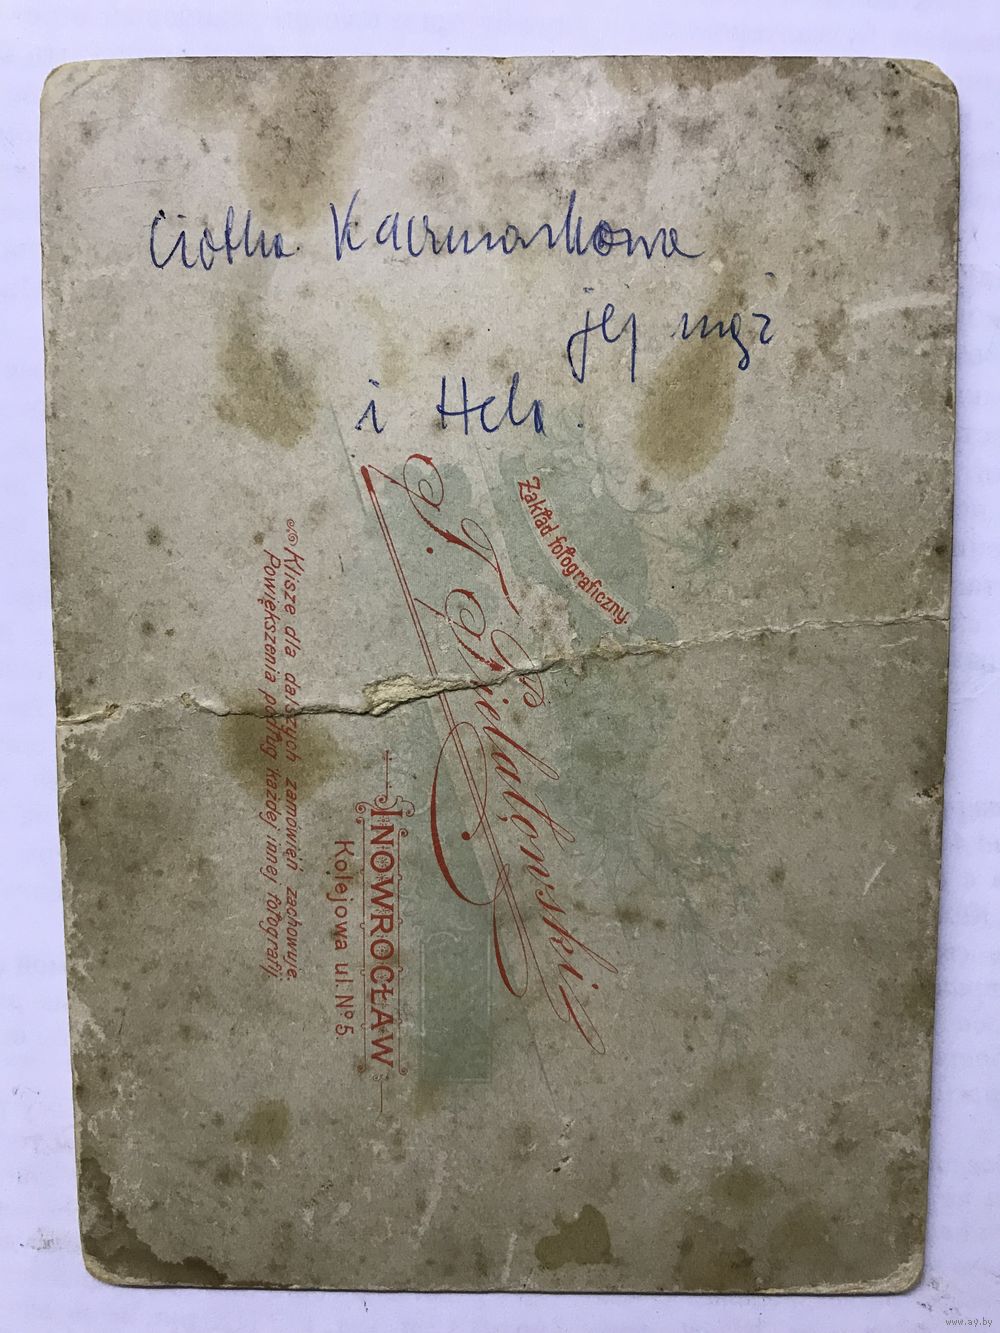 Ciotka Kaczmarkowa
jej mąż
i Hela.
Zakład fotograficzny.
INOWROCŁAW
Kolejowa ul. Nº 5.
Klisze dla dalszych zamówień zachowuje.
Powiększenia podług każdej innej fotografji.
www.ay.by